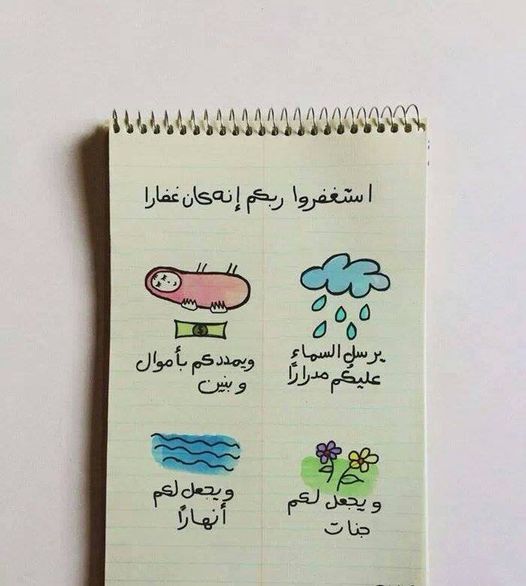 استغفروا ربكم إنه كان غفارا
يرسل السماء
عليكم مدرارًا
$
ويمددكم بأموال
وبنين
ويجعل لكم
جنات
ويجعل لكم
أنهارًا